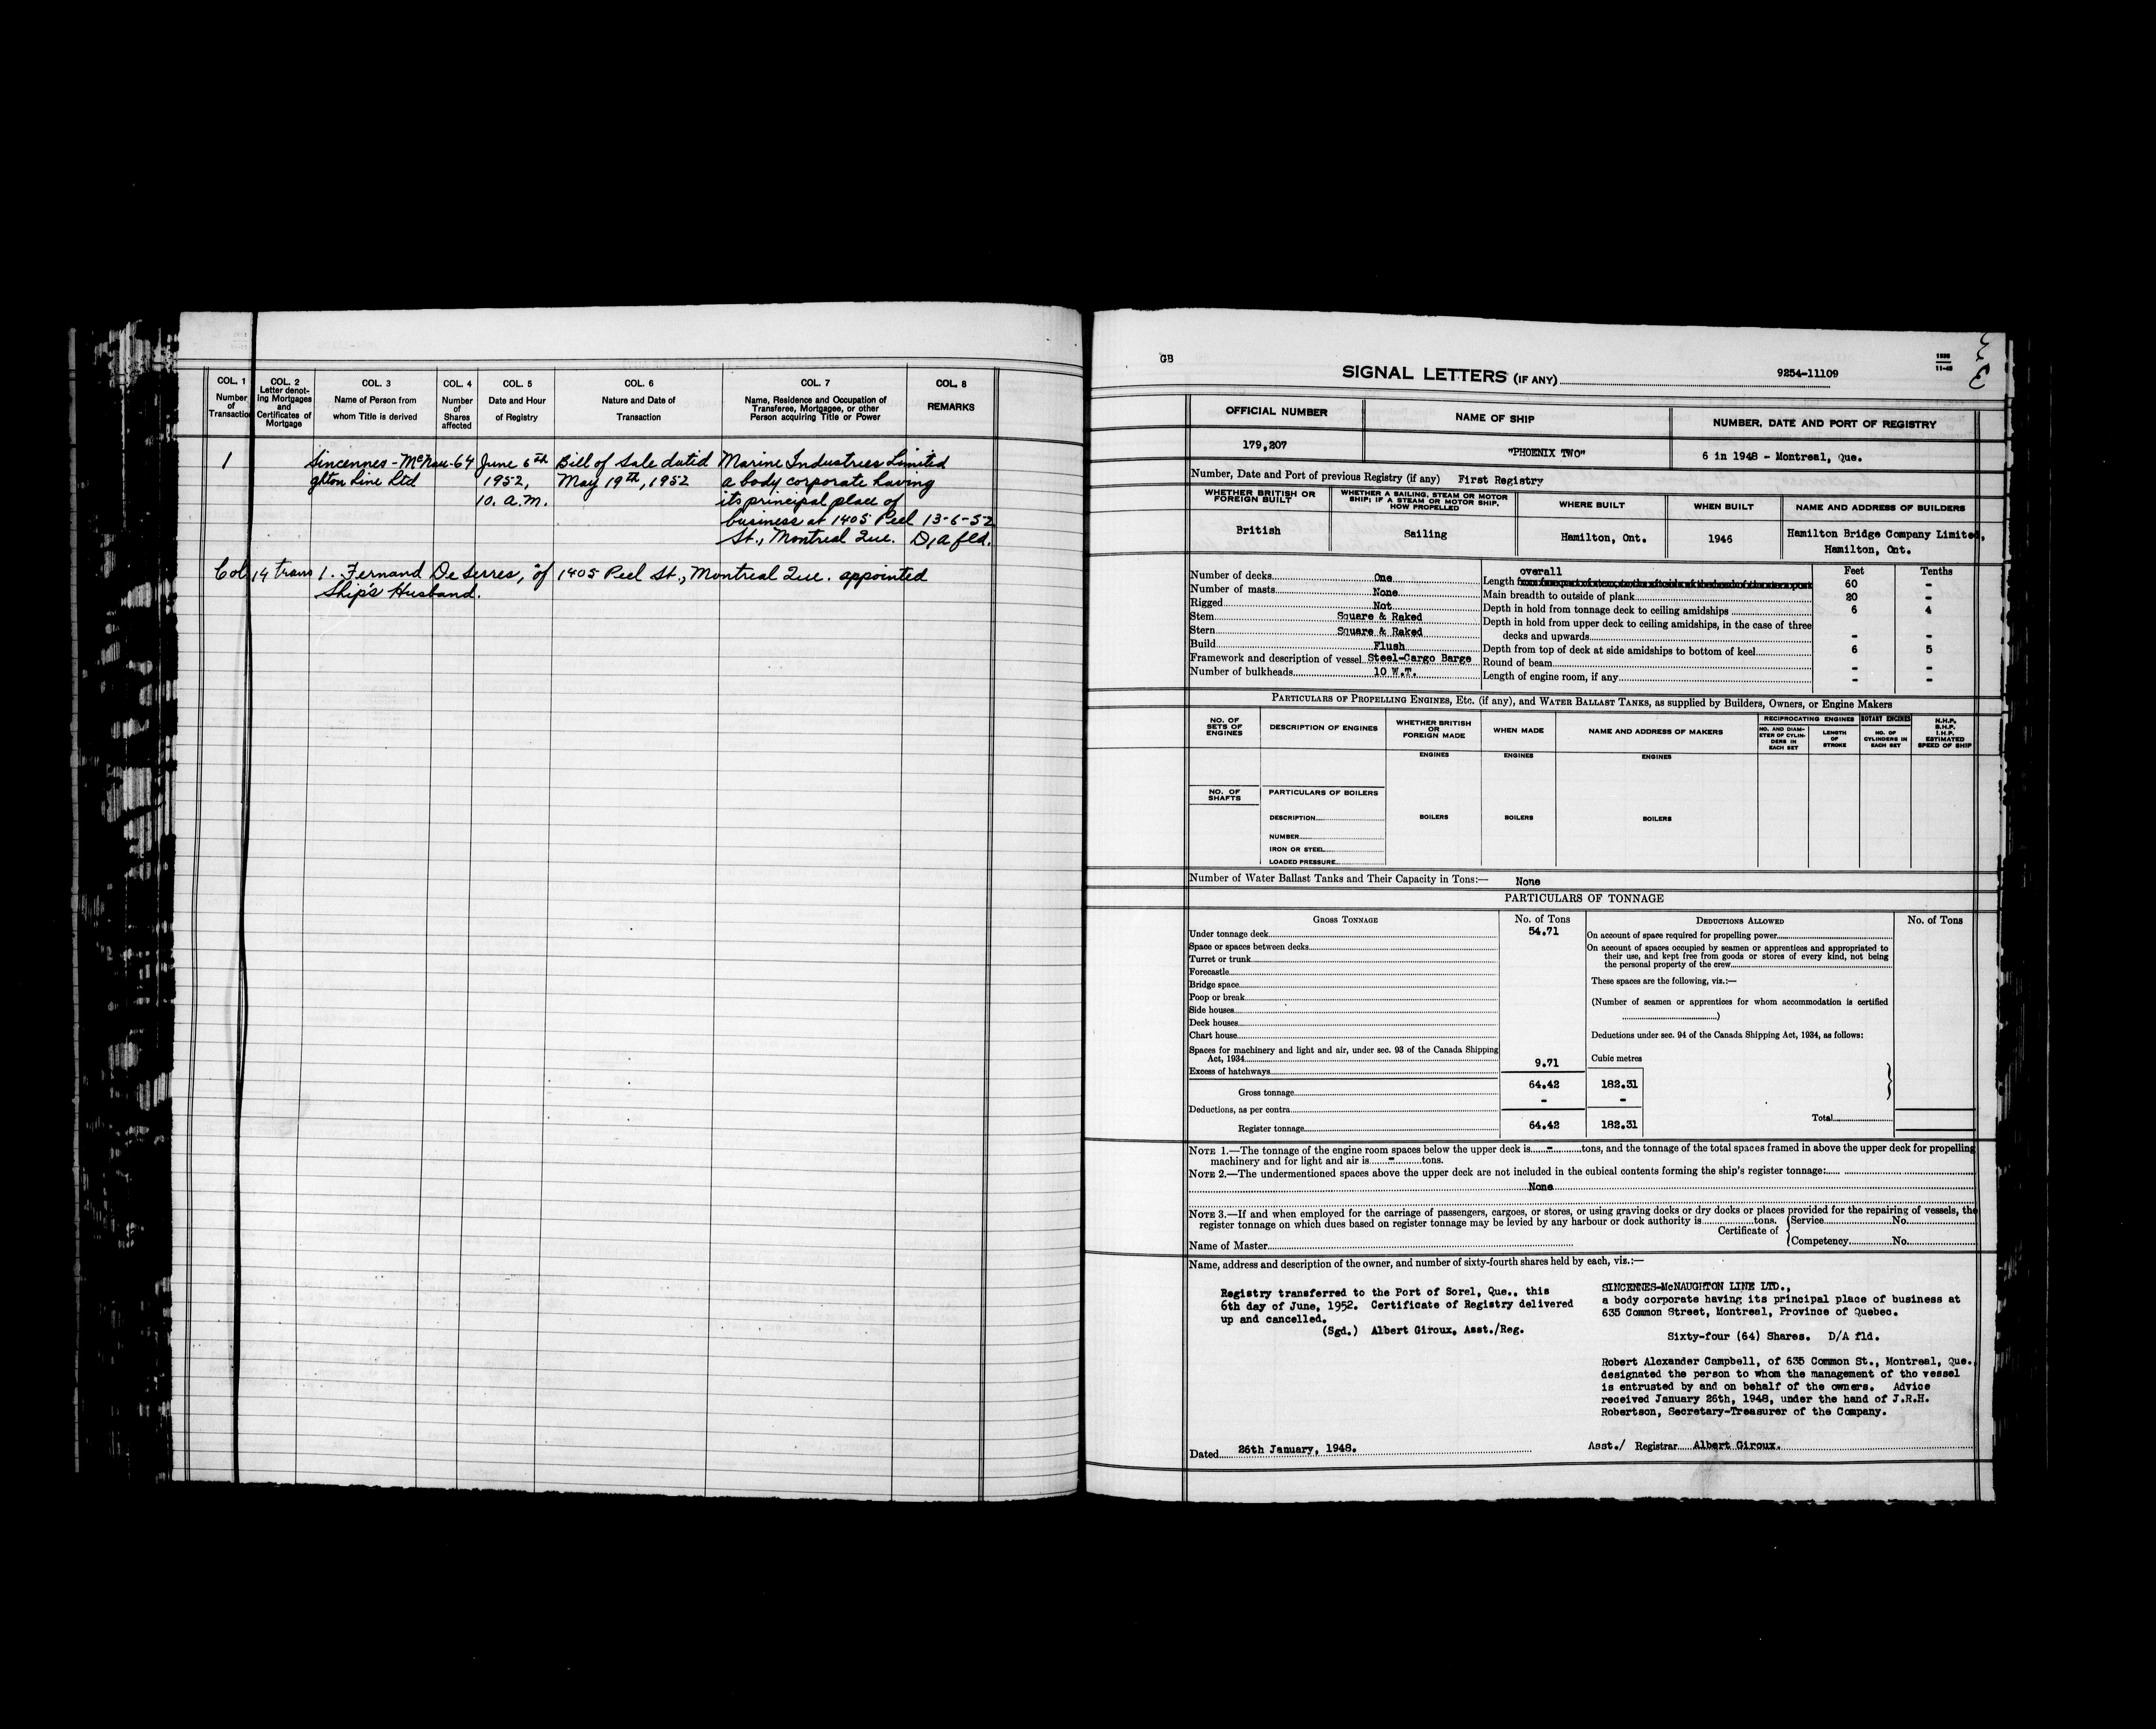 COL. 1
Number
of
Transaction
COL. 2
Letter denot-
ing Mortgages
and
Certificates of
Mortgage
COL. 3
Name of Person from
whom Title is derived
COL. 4
Number
of
Shares
affected
COL. 5
Date and Hour
of Registry
COL. 6
Nature and Date of
Transaction
COL. 7
Name, Residence and Occupation of
Transferee, Mortgagee, or other
Person acquiring Title or Power
COL. 8
REMARKS
1 Sincennes-McNau- 64 June 6th Bill of Sale dated Marine Industries Limited
ghton Line Ltd 1952, May 19th, 1952 a body corporate having
10. A.M. its principal place of
business at 1405 Peel 13-6-52
St., Montreal Que. D/A fld.
Col 14 trans 1. Fernand DeSerres, of 1405 Peel St., Montreal Que. appointed
Ship's Husband.
GB
SIGNAL LETTERS (IF ANY) 9254-11109
OFFICIAL NUMBER NAME OF SHIP NUMBER, DATE AND PORT OF REGISTRY
179,207 "PHOENIX TWO" 6 in 1948 - Montreal, Que.
Number, Date and Port of previous Registry (if any) First Registry
WHETHER BRITISH OR
FOREIGN BUILT
WHETHER A SAILING, STEAM OR MOTOR
SHIP; IF A STEAM OR MOTOR SHIP,
HOW PROPELLED
WHERE BUILT WHEN BUILT NAME AND ADDRESS OF BUILDERS
British Sailing Hamilton, Ont. 1946 Hamilton Bridge Company Limited,
Hamilton, Ont.
Number of decks One
Number of masts None
Rigged Not
Stem Square & Raked
Stern Square & Raked
Build Flush
Framework and description of vessel Steel-Cargo Barge
Number of bulkheads 10 W.T.
Feet Tenths
overall
Length 60 -
Main breadth to outside of plank 20 -
Depth in hold from tonnage deck to ceiling amidships 6 4
Depth in hold from upper deck to ceiling amidships, in the case of three
decks and upwards - -
Depth from top of deck at side amidships to bottom of keel 6 5
Round of beam - -
Length of engine room, if any - -
PARTICULARS OF PROPELLING ENGINES, ETC. (if any), and WATER BALLAST TANKS, as supplied by Builders, Owners, or Engine Makers
NO. OF
SETS OF
ENGINES
DESCRIPTION OF ENGINES
WHETHER BRITISH
OR
FOREIGN MADE
WHEN MADE
NAME AND ADDRESS OF MAKERS
RECIPROCATING ENGINES
NO. AND DIAM-
ETER OF CYLIN-
DERS IN
EACH SET
LENGTH
OF
STROKE
ROTARY ENGINES
NO. OF
CYLINDERS IN
EACH SET
N.H.P.
B.H.P.
I.H.P.
ESTIMATED
SPEED OF SHIP
ENGINES ENGINES ENGINES
NO. OF
SHAFTS
PARTICULARS OF BOILERS
DESCRIPTION BOILERS BOILERS BOILERS
NUMBER
IRON OR STEEL
LOADED PRESSURE
Number of Water Ballast Tanks and Their Capacity in Tons:— None
PARTICULARS OF TONNAGE
GROSS TONNAGE No. of Tons
Under tonnage deck 54.71
Space or spaces between decks
Turret or trunk
Forecastle
Bridge space
Poop or break
Side houses
Deck houses
Chart house
Spaces for machinery and light and air, under sec. 93 of the Canada Shipping
Act, 1934
Excess of hatchways 9.71
Cubic metres
Gross tonnage 64.42 182.31
Deductions, as per contra - -
Register tonnage 64.42 182.31
DEDUCTIONS ALLOWED No. of Tons
On account of space required for propelling power
On account of spaces occupied by seamen or apprentices and appropriated to
their use, and kept free from goods or stores of every kind, not being
the personal property of the crew
These spaces are the following, viz.:—
(Number of seamen or apprentices for whom accommodation is certified
)
Deductions under sec. 94 of the Canada Shipping Act, 1934, as follows:
Total
NOTE 1.—The tonnage of the engine room spaces below the upper deck is - tons, and the tonnage of the total spaces framed in above the upper deck for propelling
machinery and for light and air is - tons.
NOTE 2.—The undermentioned spaces above the upper deck are not included in the cubical contents forming the ship's register tonnage:
None
NOTE 3.—If and when employed for the carriage of passengers, cargoes, or stores, or using graving docks or dry docks or places provided for the repairing of vessels, the
register tonnage on which dues based on register tonnage may be levied by any harbour or dock authority is tons.
Certificate of Service No.
Competency No.
Name of Master
Name, address and description of the owner, and number of sixty-fourth shares held by each, viz.:—
Registry transferred to the Port of Sorel, Que., this
6th day of June, 1952. Certificate of Registry delivered
up and cancelled.
(Sgd.) Albert Giroux, Asst./Reg.
SINCENNES-McNAUGHTON LINE LTD.,
a body corporate having its principal place of business at
635 Common Street, Montreal, Province of Quebec.
Sixty-four (64) Shares. D/A fld.
Robert Alexander Campbell, of 635 Common St., Montreal, Que.
designated the person to whom the management of the vessel
is entrusted by and on behalf of the owners. Advice
received January 26th, 1948, under the hand of J.R.H.
Robertson, Secretary-Treasurer of the Company.
Dated 26th January, 1948. Asst./ Registrar Albert Giroux.